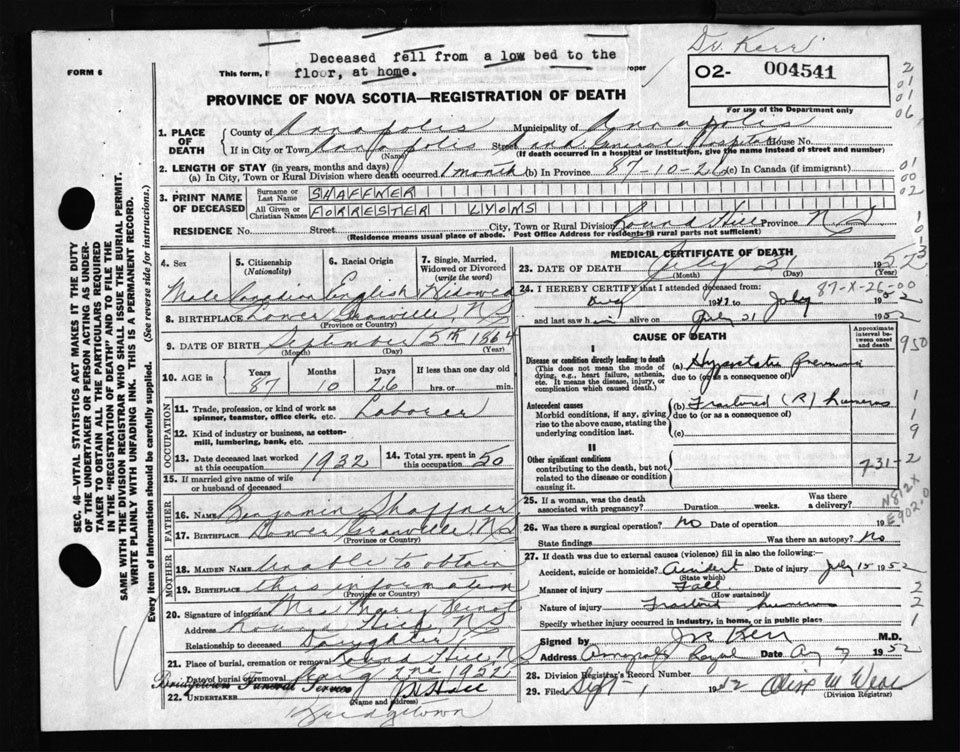 Dr. Kerr
Deceased fell from a low bed to the
floor, at home.
FORM 6
This form,
02- 004541
For use of the Department only
2
01
01
06
PROVINCE OF NOVA SCOTIA—REGISTRATION OF DEATH
1. PLACE OF DEATH
County of Annapolis Municipality of Annapolis
If in City or Town Annapolis Street General Hospital House No.
(Name) (If death occurred in a hospital or institution, give the name instead of street and number)
2. LENGTH OF STAY (in years, months and days)
(a) In City, Town or Rural Division where death occurred 1 month (b) In Province 87-10-26 (c) In Canada (if immigrant)
01
00
02
3. PRINT NAME OF DECEASED
Surname or Last Name SHAFFNER
All Given or Christian Names FORRESTER LYONS
RESIDENCE No. Street City, Town or Rural Division Round Hill Province N.S
(Residence means usual place of abode. Post Office Address for residents in rural parts not sufficient)
4. Sex
Male
5. Citizenship (Nationality)
Canadian
6. Racial Origin
English
7. Single, Married, Widowed or Divorced (write the word)
Widowed
8. BIRTHPLACE Lower Granville, N.S
(Province or Country)
9. DATE OF BIRTH September 5th 1864
(Month) (Day) (Year)
10. AGE in Years Months Days If less than one day
87 10 26 hrs. or min.
OCCUPATION
11. Trade, profession, or kind of work as spinner, teamster, office clerk, etc. Laborer
12. Kind of industry or business, as cotton-mill, lumbering, bank, etc.
13. Date deceased last worked at this occupation 1932
14. Total yrs. spent in this occupation 50
15. If married give name of wife or husband of deceased
FATHER
16. NAME Benjamin Shaffner
17. BIRTHPLACE Lower Granville, N.S
(Province or Country)
MOTHER
18. MAIDEN NAME Unable to obtain
19. BIRTHPLACE this information
(Province or Country)
20. Signature of informant Mrs
Address Round Hill, N.S
Relationship to deceased Daughter
21. Place of burial, cremation or removal Round Hill N.S
Date of burial or removal Aug 2nd 1952
Bridgetown Funeral Service
22. UNDERTAKER
(Name and address)
Bridgetown
MEDICAL CERTIFICATE OF DEATH
23. DATE OF DEATH July 31 1952
(Month) (Day) (Year)
24. I HEREBY CERTIFY that I attended deceased from:
87-X-26-00
July 1952
and last saw him alive on July 31 1952
CAUSE OF DEATH
Approximate interval between onset and death
I
Disease or condition directly leading to death
(This does not mean the mode of dying, e.g., heart failure, asthenia, etc. It means the disease, injury, or complication which caused death.)
(a) Hypostatic Pneumonia
due to (or as a consequence of)
Antecedent causes
Morbid conditions, if any, giving rise to the above cause, stating the underlying condition last.
(b) Fractured (R) humerus
due to (or as a consequence of)
(c)
II
Other significant conditions
contributing to the death, but not related to the disease or condition causing it.
731-2
25. If a woman, was the death associated with pregnancy? Duration weeks. Was there a delivery?
N812X
E902.0
26. Was there a surgical operation? No Date of operation 19
State findings Was there an autopsy? No
27. If death was due to external causes (violence) fill in also the following:—
Accident, suicide or homicide? Accident Date of injury July 15 1952
(State which)
Manner of injury Fall
(How sustained)
Nature of injury Fractured humerus
Specify whether injury occurred in industry, in home, or in public place
Signed by Kerr M.D.
Address Annapolis Royal Date Aug 1952
28. Division Registrar's Record Number
29. Filed Sept 1952
(Division Registrar)
SEC. 46—VITAL STATISTICS ACT MAKES IT THE DUTY
OF THE UNDERTAKER OR PERSON ACTING AS UNDER-
TAKER TO OBTAIN ALL THE PARTICULARS REQUIRED
IN THE "REGISTRATION OF DEATH" AND TO FILE THE
SAME WITH THE DIVISION REGISTRAR WHO SHALL ISSUE THE BURIAL PERMIT.
WRITE PLAINLY WITH UNFADING INK. THIS IS A PERMANENT RECORD.
Every item of Information should be carefully supplied. (See reverse side for instructions.)